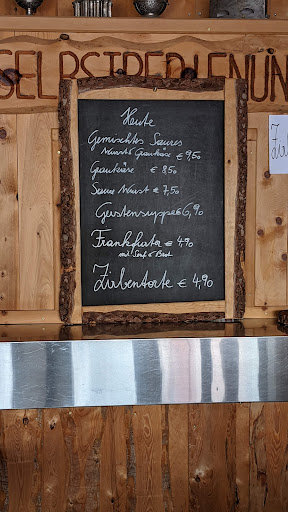 SELBSTBEDIENUN
Heute
Gemischtes Saures
Wurst & Graukäse € 9,50
Graukäse € 8,50
Saure Wurst € 7,50
Gerstensuppe € 6,90
Frankfurter € 4,90
mit Senf & Brot
Zirbentorte € 4,90